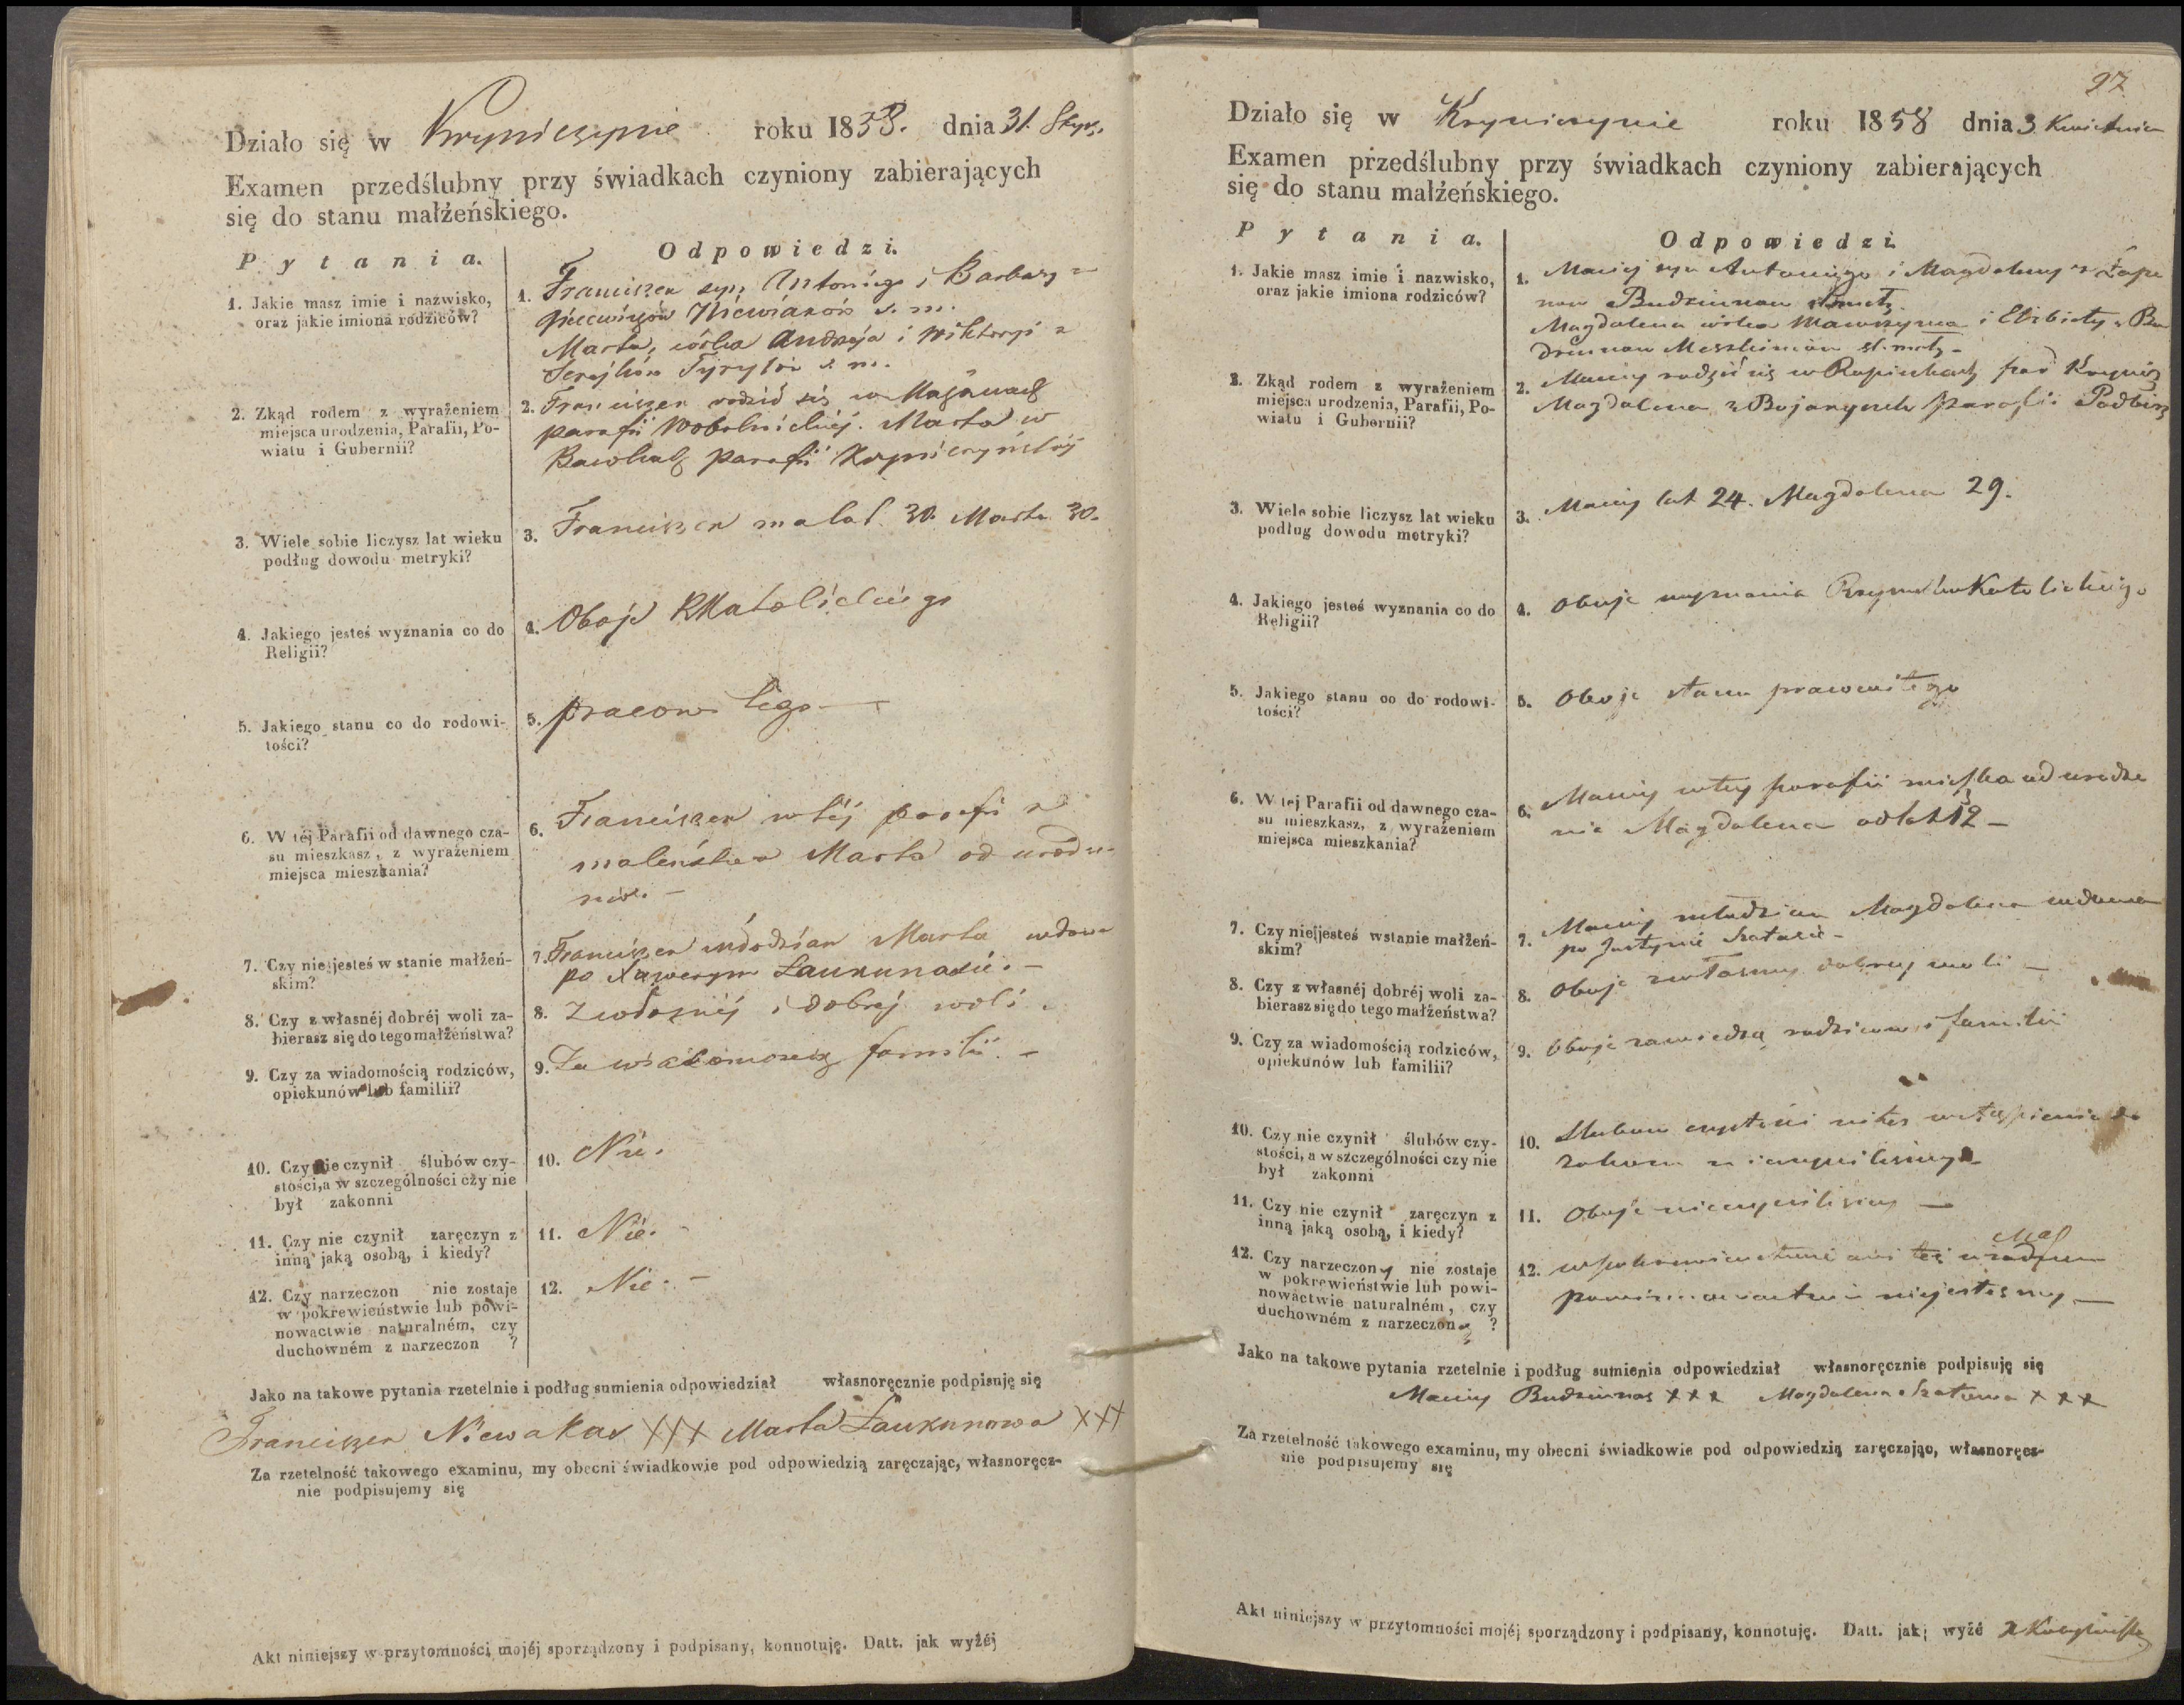 Działo się w Kryniczynie roku 1858. dnia 31. Stycz.
Examen przedślubny przy świadkach czyniony zabierających
się do stanu małżeńskiego.
Pytania. Odpowiedzi.
1. Jakie masz imie i nazwisko,
oraz jakie imiona rodziców?
1. Franciszek syn Antoniego i Barbary z
Niewiaków s. m.
Marta, córka Andrzeja i Wiktoryi z
s. m.
2. Zkąd rodem z wyrażeniem
miejsca urodzenia, Parafii, Po-
wiatu i Gubernii?
2. Franciszek rodził się w
parafii Wobolnickiej. Marta w
parafii Kryniczyńskiej
3. Wiele sobie liczysz lat wieku
podług dowodu metryki?
3. Franciszek ma lat 30. Marta 30.
4. Jakiego jesteś wyznania co do
Religii?
4. Oboje RKatolickiego
5. Jakiego stanu co do rodowi-
tości?
5. pracowitego —
6. W téj Parafii od dawnego cza-
su mieszkasz, z wyrażeniem
miejsca mieszkania?
6. Franciszek w téj parafii z
maleństwa Marta od urodze-
nia. —
7. Czy nie jesteś w stanie małżeń-
skim?
7. Franciszek młodzian Marta wdowa
po Xawerym Łaukunasie. —
8. Czy z własnéj dobréj woli za-
bierasz się do tego małżeństwa?
8. Z własnéj i dobréj woli.
9. Czy za wiadomością rodziców,
opiekunów lub familii?
9. Za wiadomością familii. —
10. Czy nie czynił ślubów czy-
stości, a w szczególności czy nie
był zakonni
10. Nie.
11. Czy nie czynił zaręczyn z
inną jaką osobą, i kiedy?
11. Nie. -
12. Czy narzeczon nie zostaje
w pokrewieństwie lub powi-
nowactwie naturalném, czy
duchowném z narzeczon ?
12. Nie. —
Jako na takowe pytania rzetelnie i podług sumienia odpowiedział własnoręcznie podpisuję się
Franciszek Niewakas XXX Marta Łaukunowa XXX
Za rzetelność takowego examinu, my obecni świadkowie pod odpowiedzią zaręczając, własnoręcz-
nie podpisujemy się
Akt niniejszy w przytomności mojéj sporządzony i podpisany, konnotuję. Datt. jak wyżéj
97
Działo się w Kryniczynie roku 1858 dnia 3 Kwietnia
Examen przedślubny przy świadkach czyniony zabierających
się do stanu małżeńskiego.
Pytania. Odpowiedzi.
1. Jakie masz imie i nazwisko,
oraz jakie imiona rodziców?
1. Maciej syn Antoniego i Magdaleny z
Budziunow
Magdalena córka Wawrzyna i Elżbiety z
2. Zkąd rodem z wyrażeniem
miejsca urodzenia, Parafii, Po-
wiatu i Gubernii?
2. Maciej rodził się w
Magdalena z parafii
3. Wiele sobie liczysz lat wieku
podług dowodu metryki?
3. Maciej lat 24. Magdalena 29.
4. Jakiego jesteś wyznania co do
Religii?
4. Oboje wyznania RzymskoKatolickiego
5. Jakiego stanu co do rodowi-
tości?
5. Oboje stanu pracowitego
6. W tej Parafii od dawnego cza-
su mieszkasz, z wyrażeniem
miejsca mieszkania?
6. Maciej w tej parafii mieszka od urodze
nia Magdalena od lat —
7. Czy nie jesteś w stanie małżeń-
skim?
7. Maciej młodzian Magdalena wdowa
po Justynie —
8. Czy z własnéj dobréj woli za-
bierasz się do tego małżeństwa?
8. Oboje z własnej dobrej woli —
9. Czy za wiadomością rodziców,
opiekunów lub familii?
9. Oboje za wiedzą rodziców i familii
10. Czy nie czynił ślubów czy-
stości, a w szczególności czy nie
był zakonni
10. Ślubu czystości wstąpienia do
zakonu nieczyniliśmy
11. Czy nie czynił zaręczyn z
inną jaką osobą, i kiedy?
11. Oboje nieczyniliśmy —
12. Czy narzeczony nie zostaje
w pokrewieństwie lub powi-
nowactwie naturalném, czy
duchowném z narzeczoną ?
12. w pokrewieństwie ani też
powinowactwie niejesteśmy —
Jako na takowe pytania rzetelnie i podług sumienia odpowiedział własnoręcznie podpisuję się
Maciej Budziunas XXX Magdalena XXX
Za rzetelność takowego examinu, my obecni świadkowie pod odpowiedzią zaręczając, własnoręcz-
nie podpisujemy się
Akt niniejszy w przytomności mojéj sporządzony i podpisany, konnotuję. Datt. jak wyżé